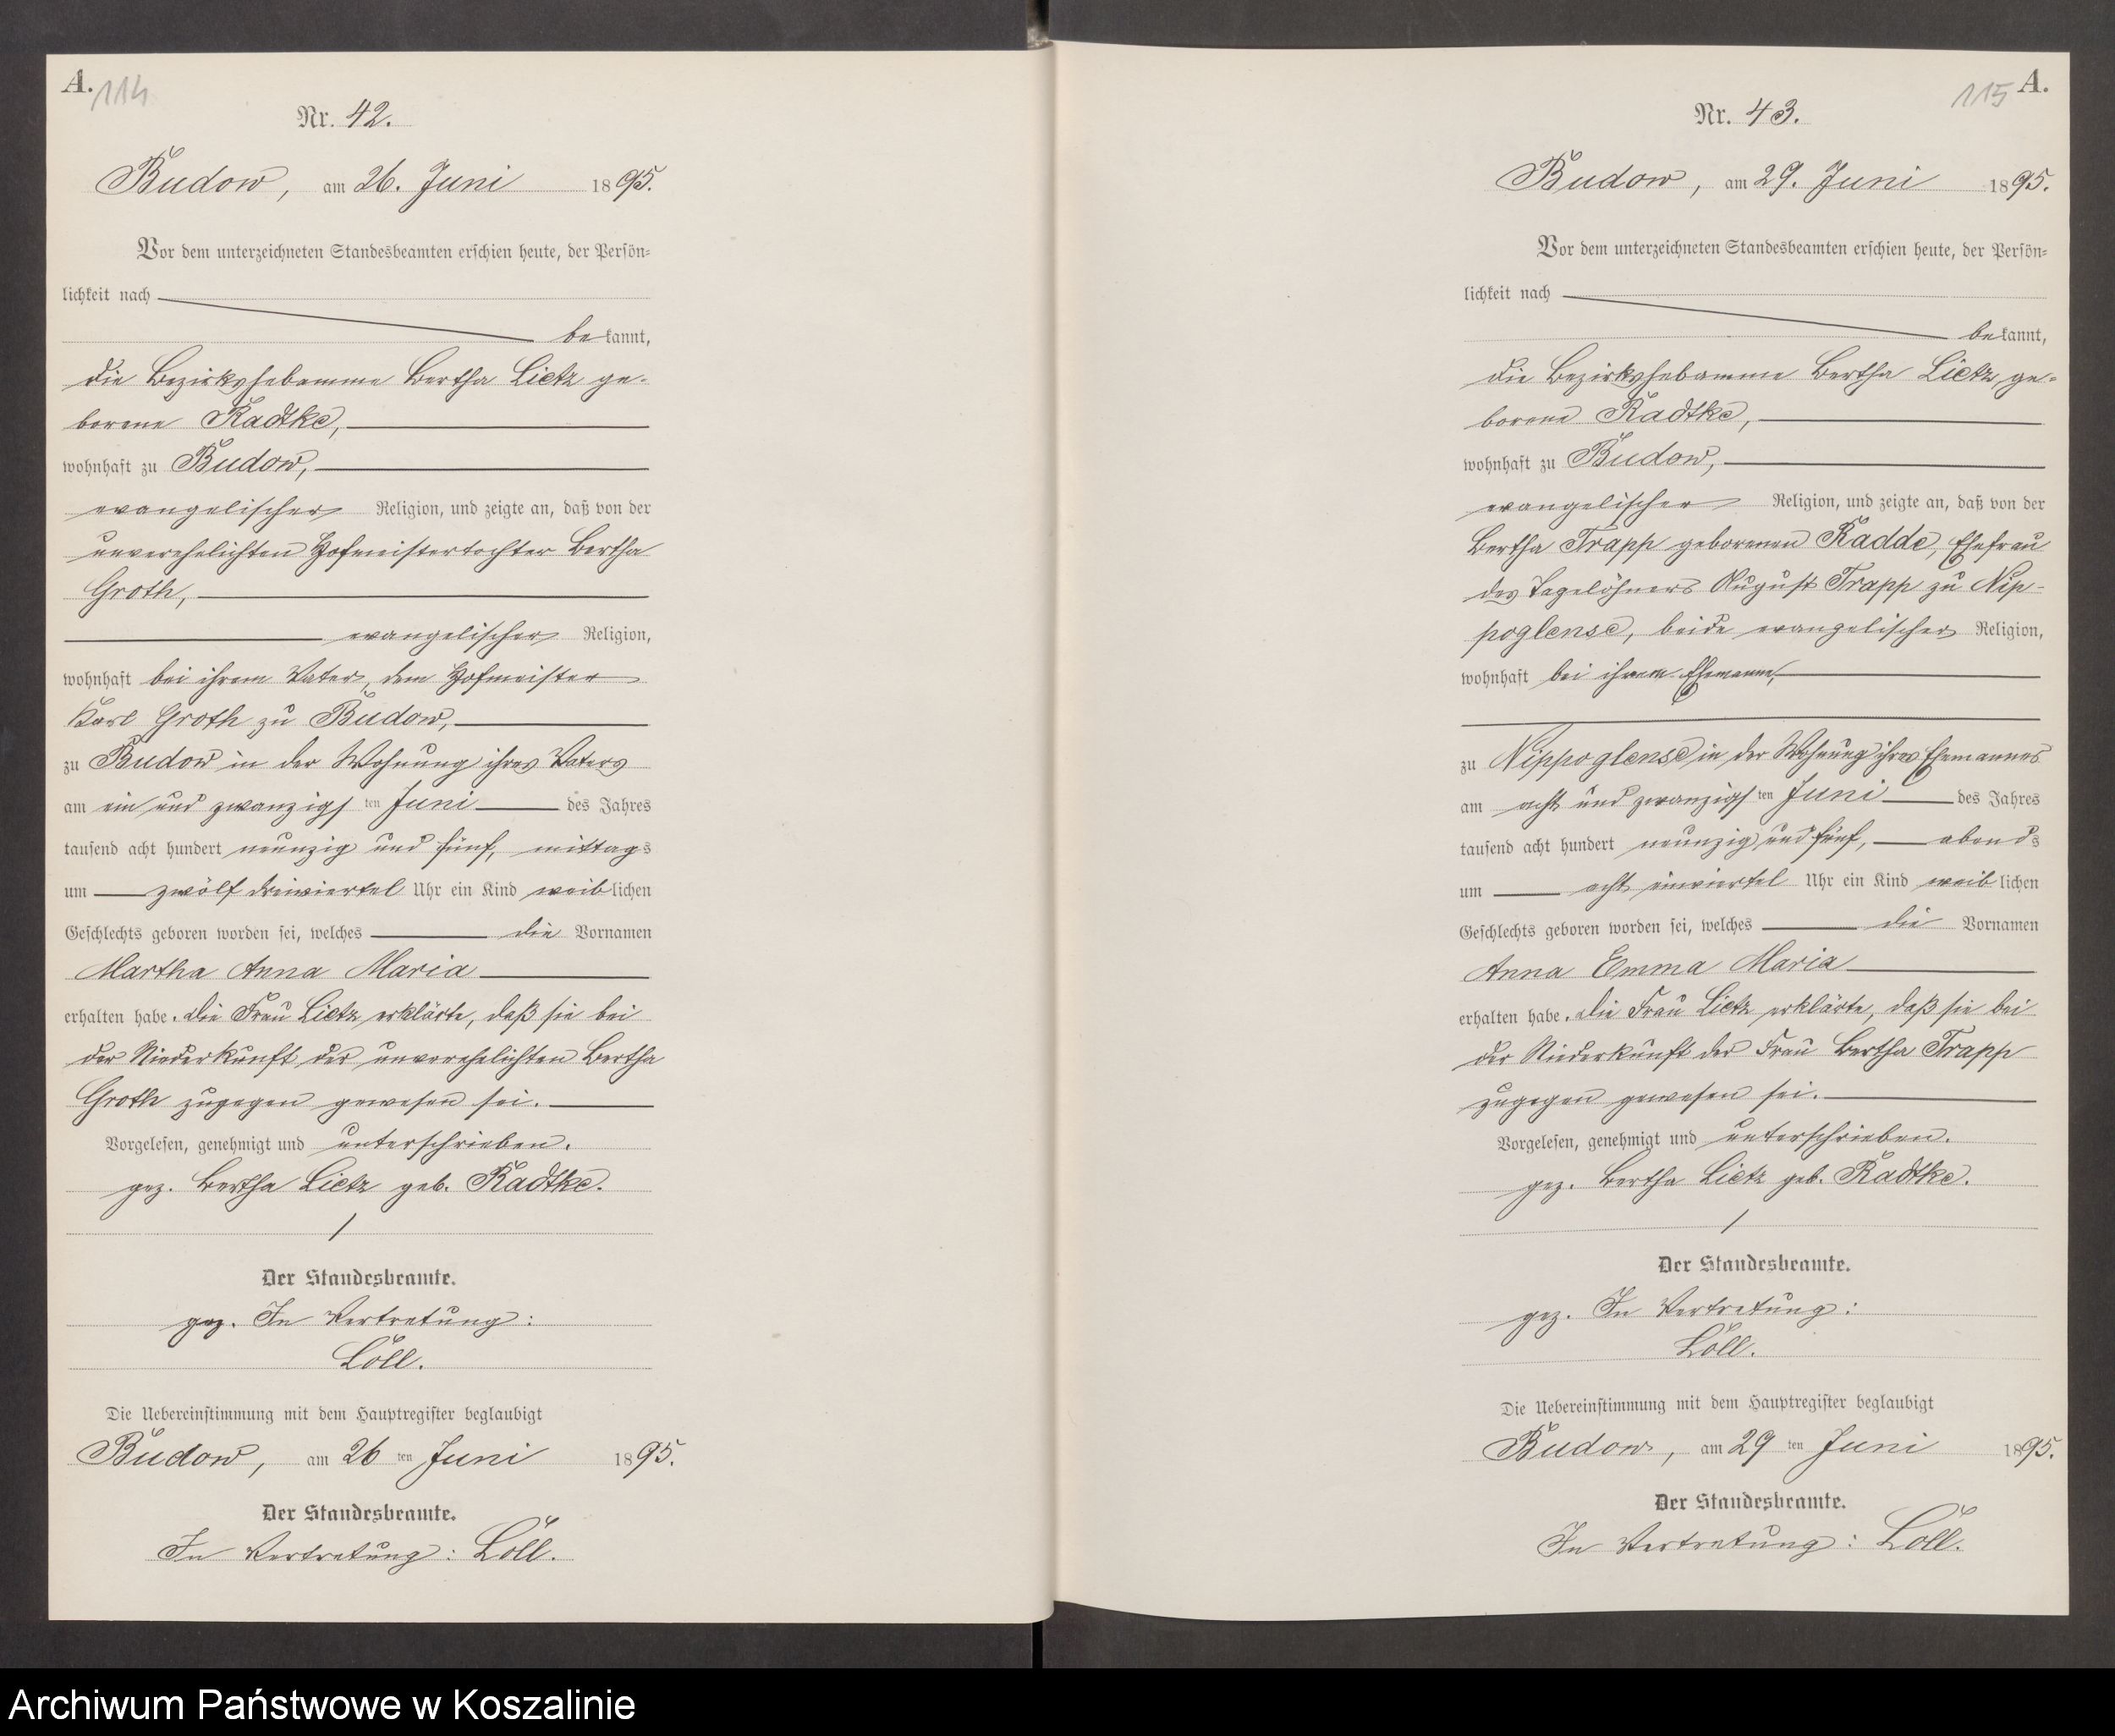 A. 114
Nr. 42.
Budow, am 26. Juni 1895.
Vor dem unterzeichneten Standesbeamten erschien heute, der Persön-
lichkeit nach
bekannt,
die Bezirkshebamme Bertha Lietz ge-
borene Radtke,
wohnhaft zu Budow,
evangelischer Religion, und zeigte an, daß von der
unverehelichten Hofmeistertochter Bertha
Groth,
evangelischer Religion,
wohnhaft bei ihrem Vater, dem Hofmeister
Karl Groth zu Budow,
zu Budow in der Wohnung ihres Vaters
am ein und zwanzigsten Juni des Jahres
tausend acht hundert neunzig und fünf, mittags
um zwölf dreiviertel Uhr ein Kind weiblichen
Geschlechts geboren worden sei, welches die Vornamen
Martha Anna Maria
erhalten habe. Die Frau Lietz erklärte, daß sie bei
der Niederkunft der unverehelichten Bertha
Groth zugegen gewesen sei.
Vorgelesen, genehmigt und unterschrieben.
gez. Bertha Lietz geb. Radtke.
Der Standesbeamte.
gez. In Vertretung:
Löll.
Die Uebereinstimmung mit dem Hauptregister beglaubigt
Budow, am 26 ten Juni 1895.
Der Standesbeamte.
In Vertretung: Löll.
115 A.
Nr. 43.
Budow, am 29. Juni 1895.
Vor dem unterzeichneten Standesbeamten erschien heute, der Persön-
lichkeit nach
bekannt,
die Bezirkshebamme Bertha Lietz ge-
borene Radtke,
wohnhaft zu Budow,
evangelischer Religion, und zeigte an, daß von der
Bertha Trapp geborenen Radde, Ehefrau
des Tagelöhners August Trapp zu Nip-
poglense, beide evangelischer Religion,
wohnhaft bei ihrem Ehemann,
zu Nippoglense in der Wohnung ihres Ehemannes
am acht und zwanzigsten Juni des Jahres
tausend acht hundert neunzig und fünf, abends
um acht einviertel Uhr ein Kind weiblichen
Geschlechts geboren worden sei, welches die Vornamen
Anna Emma Maria
erhalten habe. Die Frau Lietz erklärte, daß sie bei
der Niederkunft der Frau Bertha Trapp
zugegen gewesen sei.
Vorgelesen, genehmigt und unterschrieben.
gez. Bertha Lietz geb. Radtke.
Der Standesbeamte.
gez. In Vertretung:
Löll.
Die Uebereinstimmung mit dem Hauptregister beglaubigt
Budow, am 29 ten Juni 1895.
Der Standesbeamte.
In Vertretung: Löll.
Archiwum Państwowe w Koszalinie